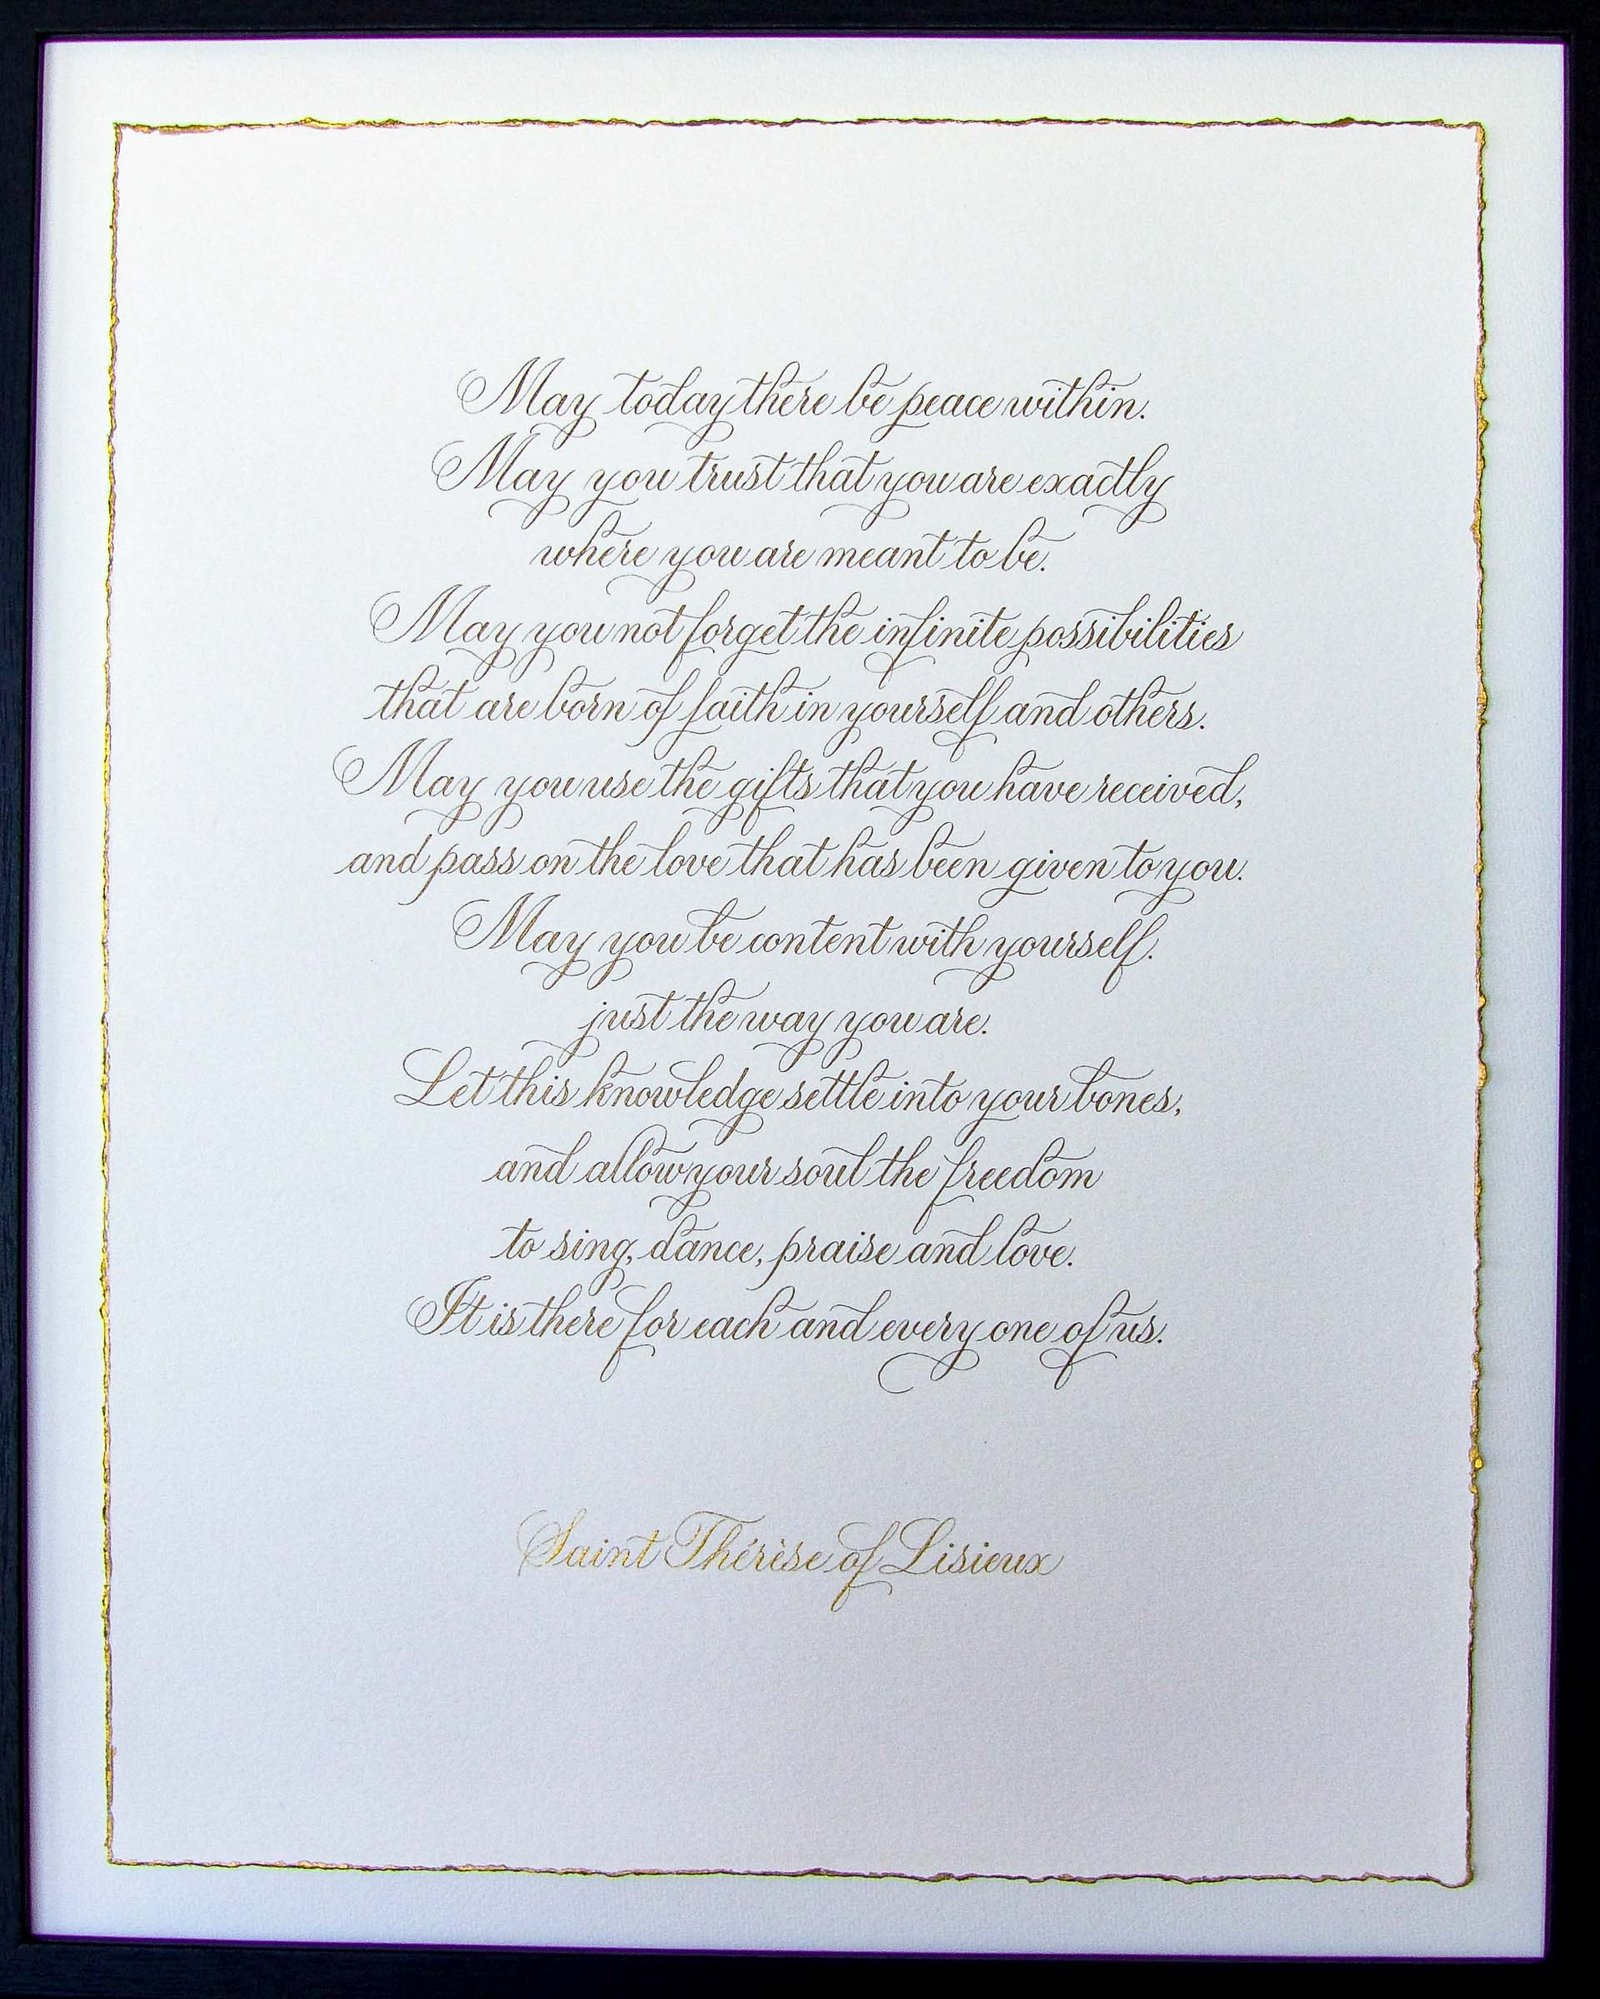 May today there be peace within.
May you trust that you are exactly
where you are meant to be.
May you not forget the infinite possibilities
that are born of faith in yourself and others.
May you use the gifts that you have received,
and pass on the love that has been given to you.
May you be content with yourself.
just the way you are.
Let this knowledge settle into your bones,
and allow your soul the freedom
to sing, dance, praise and love.
It is there for each and every one of us.
Saint Thérèse of Lisieux